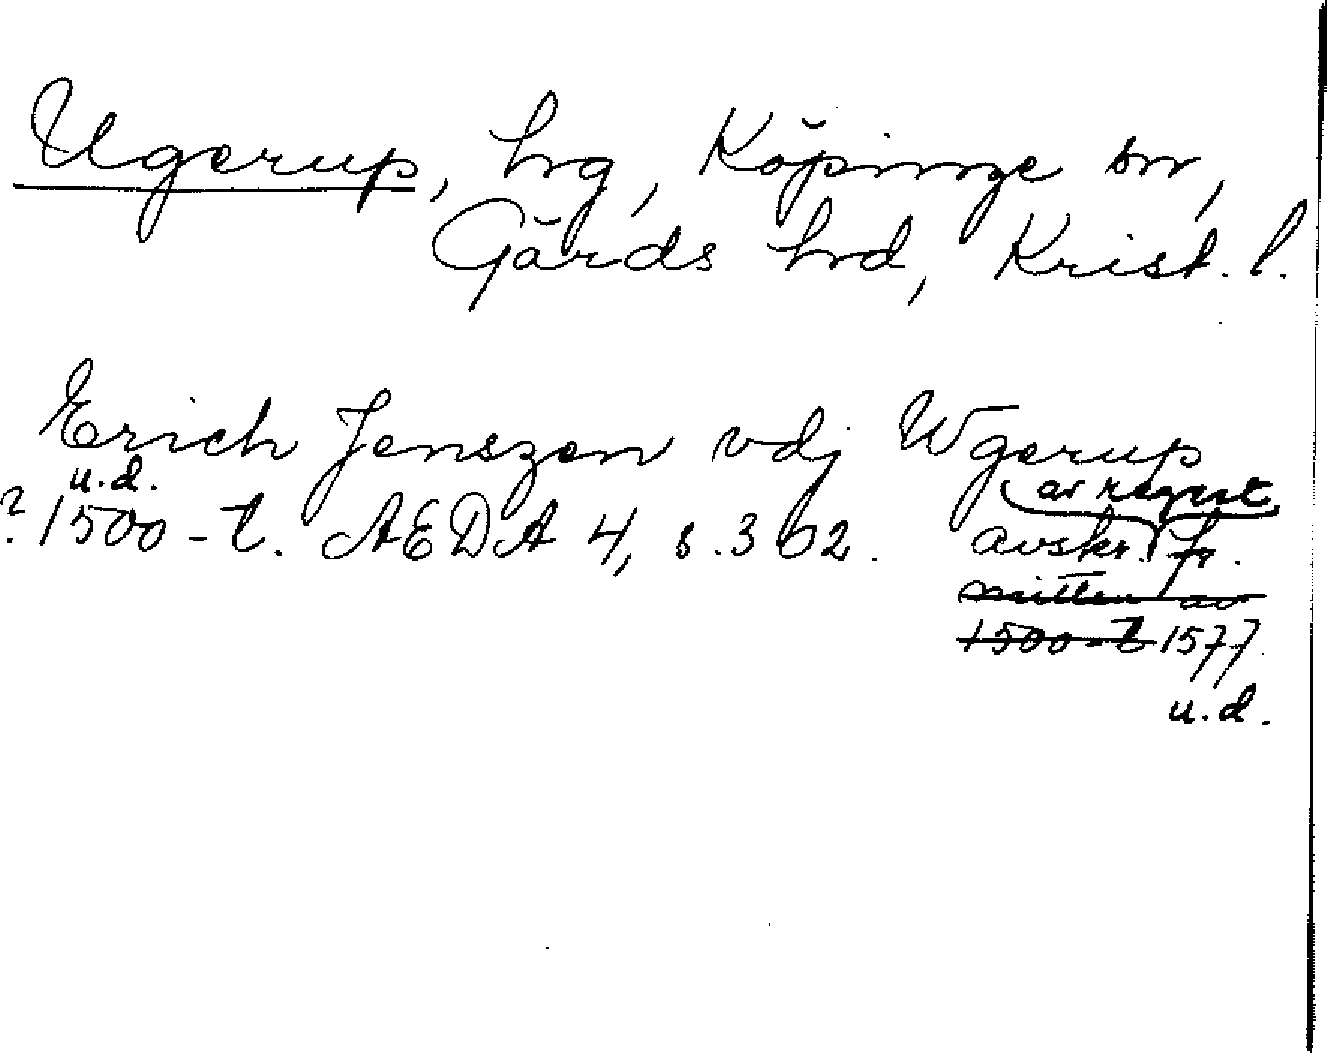 Ugerup, hrg, Köpinge sn,
Gärds hrd, Krist. l.
Erich Jenszen vdj Wgerup
u.d.
? 1500-t. AEDA 4, s. 362.
av regest
avskr. fr.
mitten av
1500-t 1577
u.d.